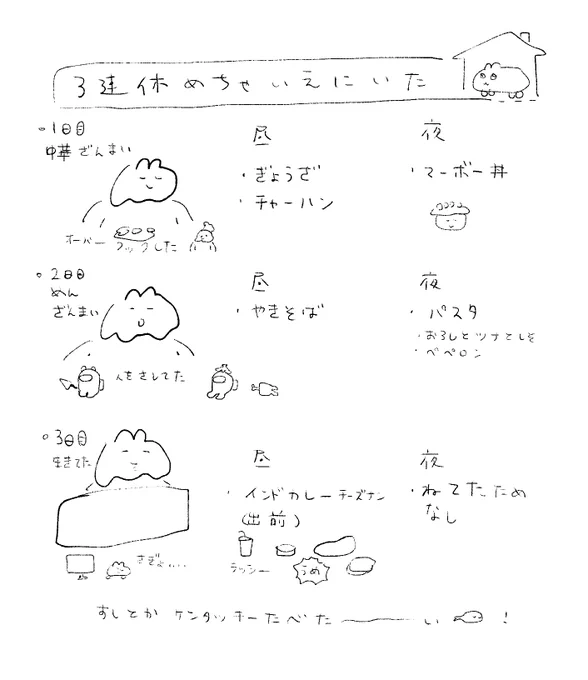 3連休めちゃいえにいた
1日目
中華ざんまい
昼
・ぎょうざ
・チャーハン
夜
・マーボー丼
オーバー
クックした
2日目
めん
ざんまい
昼
・やきそば
夜
・パスタ
・おろしとツナとしそ
・ペペロン
人をさしてた
3日目
生きてた
昼
・インドカレーチーズナン
(出前)
夜
・ねてたため
なし
さぎょ...
ラッシー
うめ
すしとかケンタッチーたべたーい!